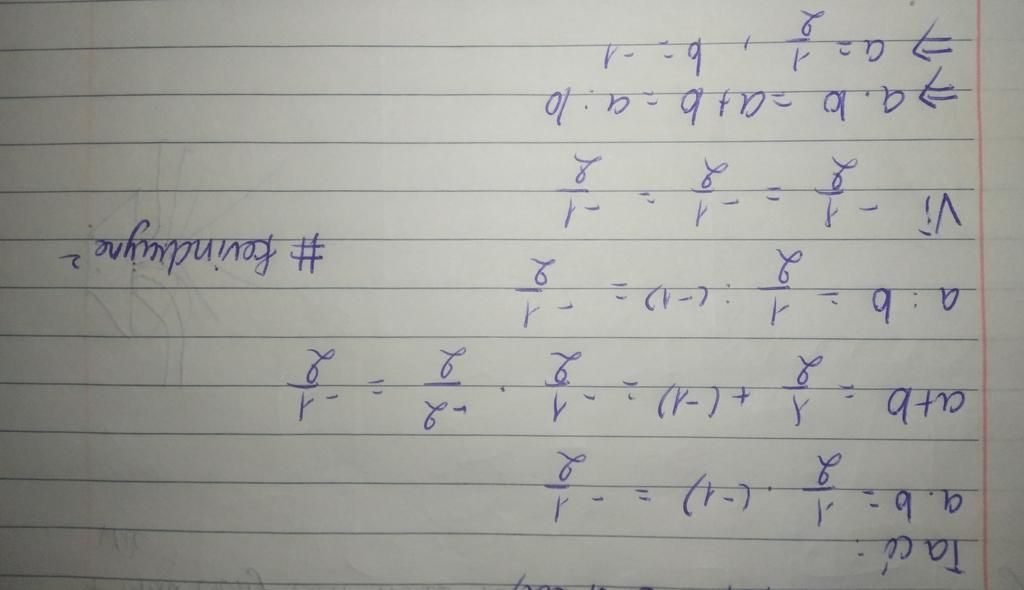 Ta có:
a.b = 1/2 . (-1) = -1/2
a+b = 1/2 + (-1) = -1/2 . -2/2 = -1/2
a : b = 1/2 : (-1) = -1/2
Vì -1/2 = -1/2 = -1/2
⇒ a.b = a+b = a:b
⇒ a = 1/2 , b = -1